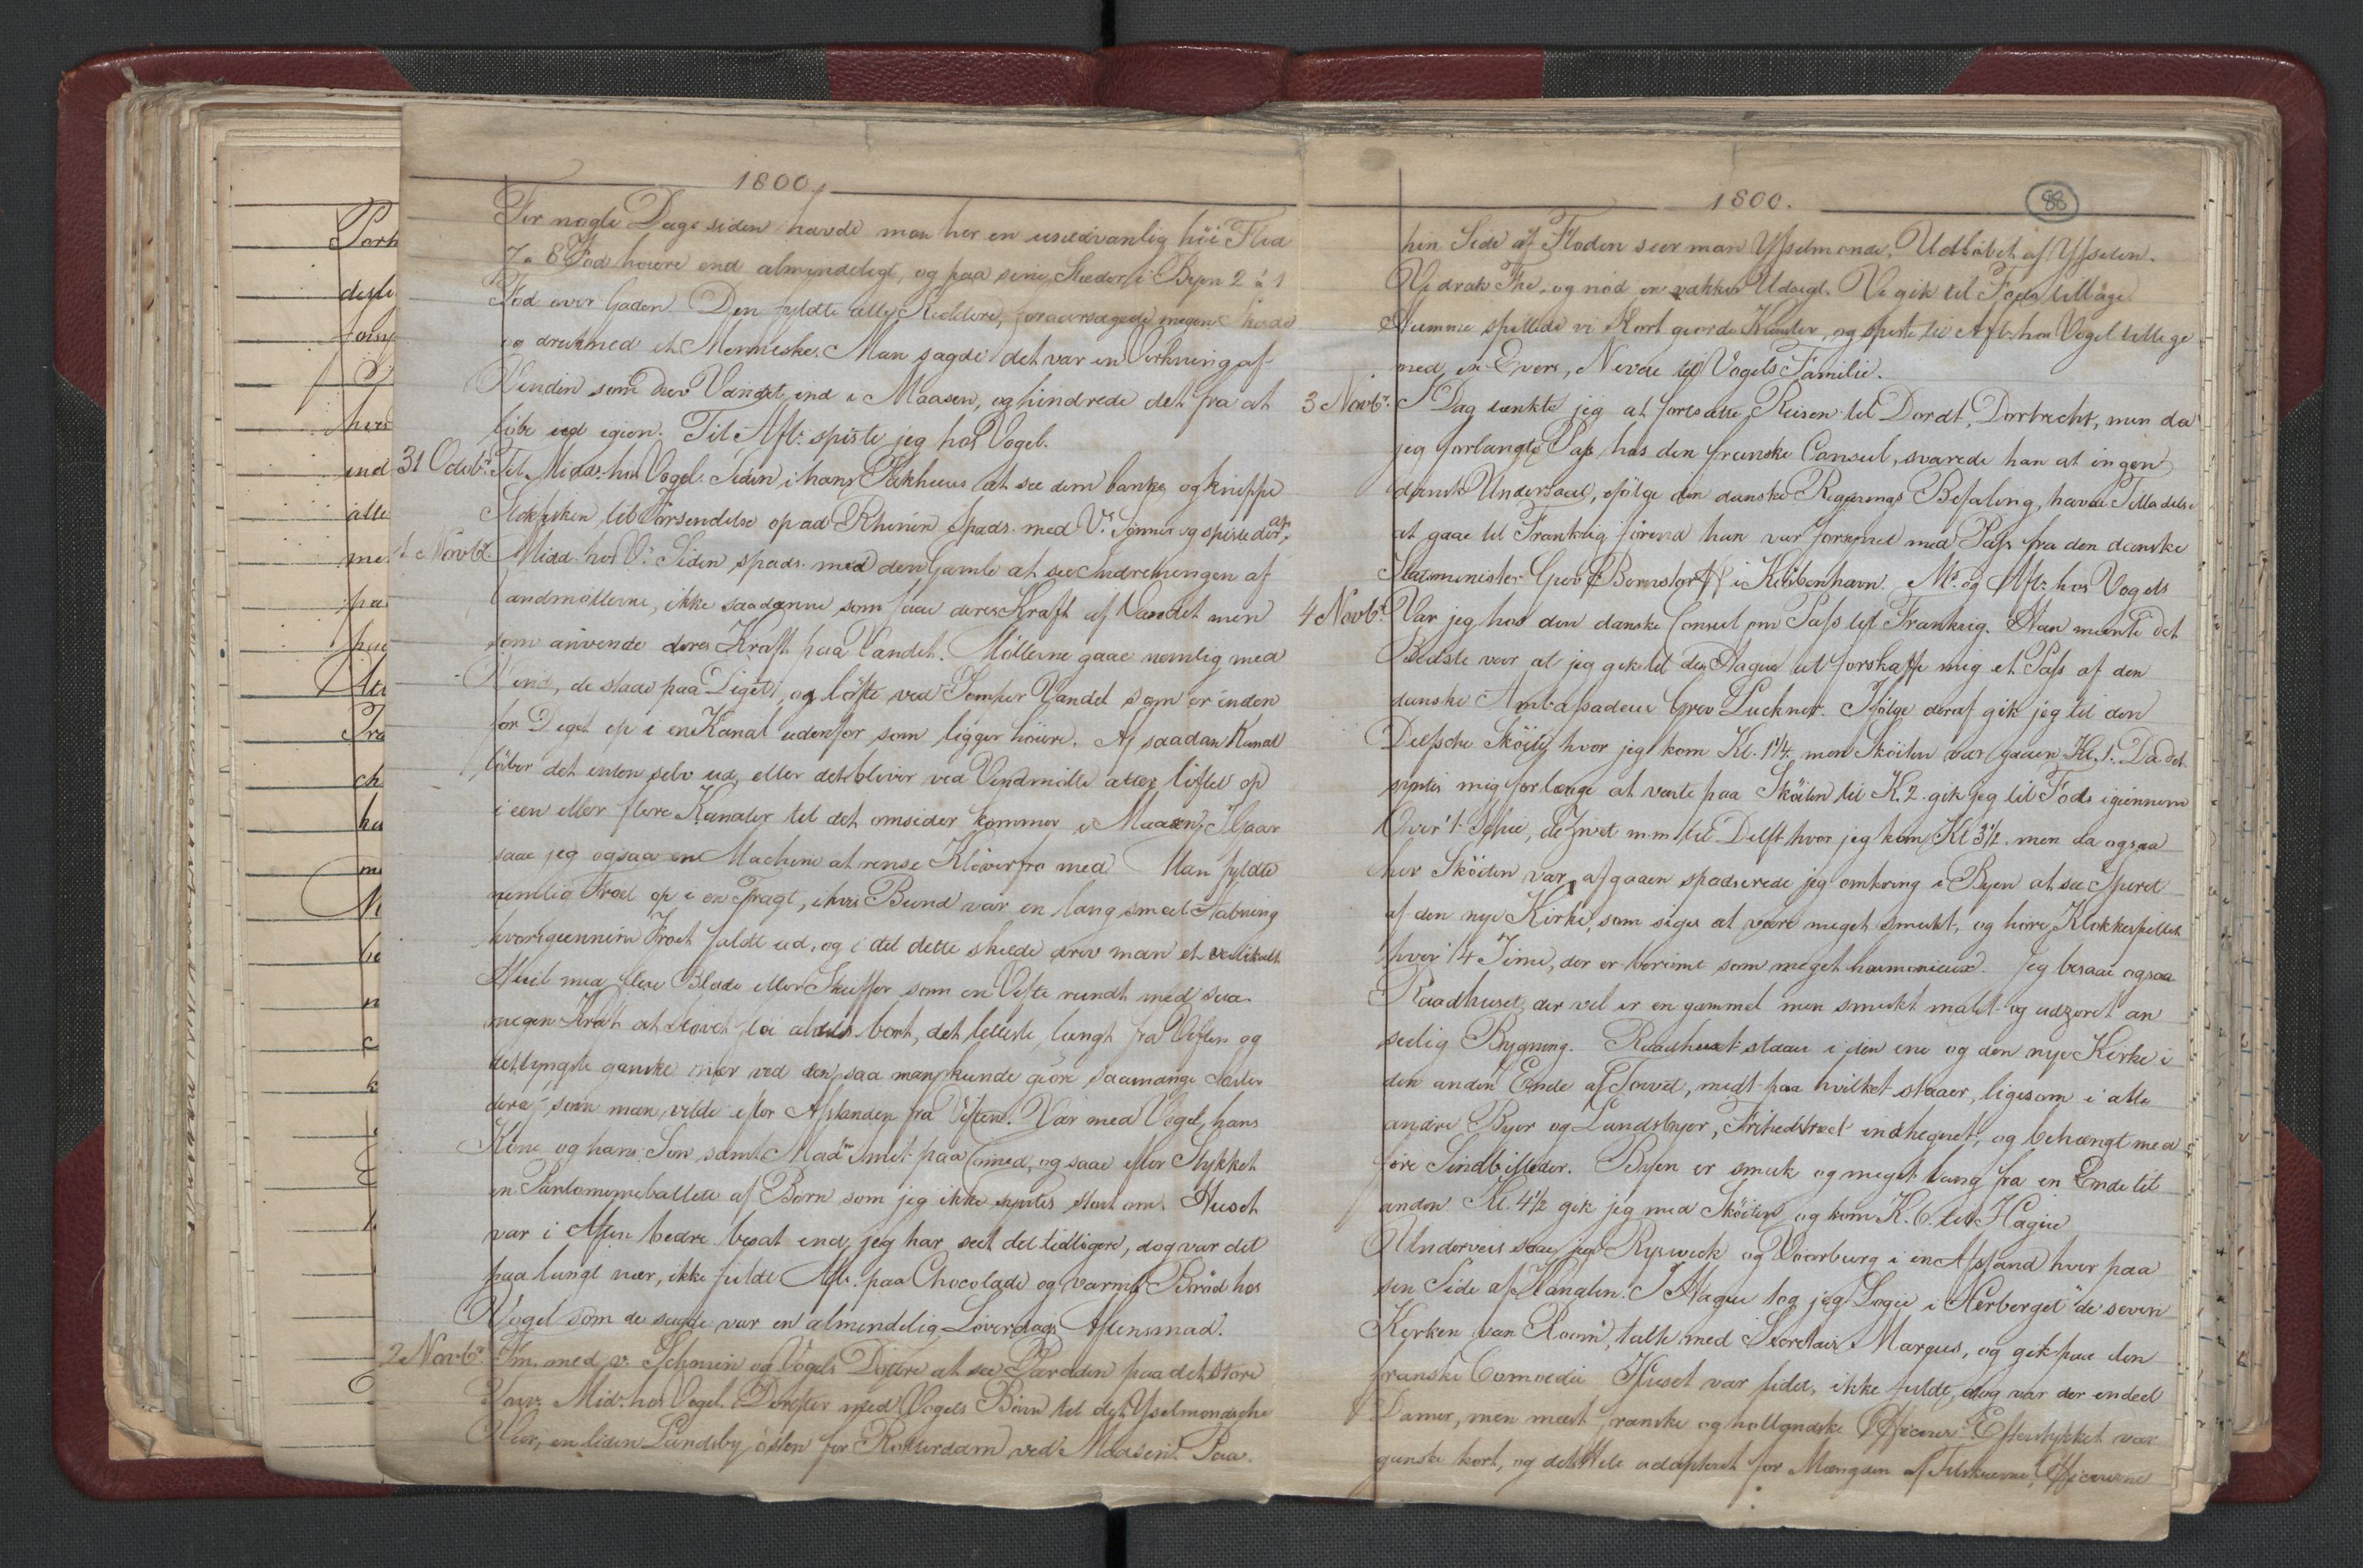 1800.
For nogle Dage siden havde man her en usædvanlig höi Flod
7 a 8 Fod höiere end almindeligt, og paa sine Stæder i Byen 2 à 1
Fod over Gaden. Den fyldte alle Kieldere, foraarsagede megen Skade
og druknede et Menneske. Man sagde det var en Virkning af
Vinden som drev Vandet ind i Maasen, og hindrede det fra at
löbe ud igien. Til Aft: spiste jeg hos Vogel.
31 Octob: Til Midd: hos Vogel. Siden i hans Pakhuus at see dem banke og knippe
Stokfisken til Forsendelse op ad Rhinen. Spads. med V: Sönner og spiste der Aft:
1 Novb: Midd hos V: Siden spads. med den Gamle at see Indretningen af
Vandmöllerne, ikke saadanne som faae deres Kraft af Vandet men
som anvende deres Kraft paa Vandet. Möllerne gaae nemlig med
Vind, de staae paa Diget, og löfte ved Pomper Vandet som er inden
for Diget op i en Kanal udenfor som ligger höiere. Af saadan Kanal
löber det enten selv ud, eller det bliver ved Vindmölle atter löftet op
i een eller flere Kanaler til det omsider kommer i Maasen. Igaar
saae jeg ogsaa en Machine at rense Klöverfrö med. Man fyldte
nemlig Fröet op i en Tragt, i hvis Bund var en lang smal Aabning
hvorigiennem Fröet faldt ud, og i det dette skede drev man et vertikalt
Hiul med flere Blade eller Skuffer som en Vifte rundt med saa
megen Kraft at Stövet flöi aldeles bort, det letteste langt fra Viften og
det tyngste ganske nær ved den, saa man kunde giöre saamange Sorter
deraf som man vilde efter Afstanden fra Viften. Var med Vogel, hans
Kone og hans Sön samt Mad: Smet paa Comed, og saae efter Stykket
en Pantomimeballet af Börn som jeg ikke syntes stort om. Huset
var i Aften bedre besat end jeg har seet det tidligere, dog var det
paa langt nær, ikke fuldt. Aft: paa Chocolade og varmt Bröd hos
Vogel som de sagde var en almindelig Löverdags Aftensmad.
2 Novb: Fm. med v. Schmin og Vogels Döttre at see Paraden paa det store
Torv. Mid: hos Vogel. Derefter med Vogels Börn til det Ysselmondsche
Veer, en liden Landsby östen for Rotterdam ved Maasen. Paa
1800.
88
hin Side af Floden seer man Ysselmonde, Udlöbet af Ysselen.
Vi drak The, og nöd en vakker Udsigt. Vi gik til Fods tilbage
Hiemme spillede vi Kort giorde Kunster, og spiste til Aft: hos Vogel tillige
med en Evers, Neveu til Vogels Familie.
3 Novb: I Dag tænkte jeg at fortsætte Reisen til Dordt, Dortrecht, men da
jeg forlangte Pas hos den franske Consul, svarede han at ingen
dansk Undersaat, ifölge den danske Regierings Befaling, havde Tilladelse
at gaae til Frankrig förend han var forsynet med Pass fra den danske
Statsminister Grev Bernstorff i Kiöbenhavn. M: og Aft: hos Vogels
4 Novb: Var jeg hos den danske Consul om Pass til Frankrig. Han meente det
Bedste var at jeg gik til den Hague at forskaffe mig et Pass af den
danske Ambassadeur Grev Luckner. Ifölge deraf gik jeg til den
Delfsche Sköite hvor jeg kom Kl. 1 1/4 men Sköiten var gaaen Kl. 1. Da det
syntes mig for længe at vente paa Sköiten til K. 2. gik jeg til Fods igiennem
Over't Schie, de Zwet m m til Delft hvor jeg kom Kl 3 1/2 men da ogsaa
her Sköiten var afgaaen spadserede jeg omkring i Byen at see Spiret
af den nye Kirke, som siges at være meget smukt, og höre Klokkespillet
hver 1/4 Time, der er berömt som meget harmonieux. Jeg besaae ogsaa
Raadhuset der vel er en gammel men smukt malt og udziret an
seelig Bygning. Raadhuset staaer i den ene og den nye Kirke i
den anden Ende af Torvet, midt paa hvilket staaer, ligesom i alle
andre Byer og Landsbyer, Frihedstræet indhegnet, og behængt med
sine Sindbilleder. Byen er smuk og meget lang fra en Ende til
anden. Kl. 4 1/2 gik jeg med Sköiten og kom K. 6. til Hague
Underveis saae jeg Ryswick og Voorburg i en Afstand hver paa
sin Side af Kanalen. I Hague tog jeg Logie i Herberget "de seven
Kerken van Room", talte med Secretair Marqus, og gik paa den
franske Comoedie. Huset var sidet, ikke fuldt, dog var der endeel
Damer, men meest franske og hollandske Officerer. Efterstykket var
ganske kort, og det Hele adapteret for Mængden af Tilskuerne, Officererne